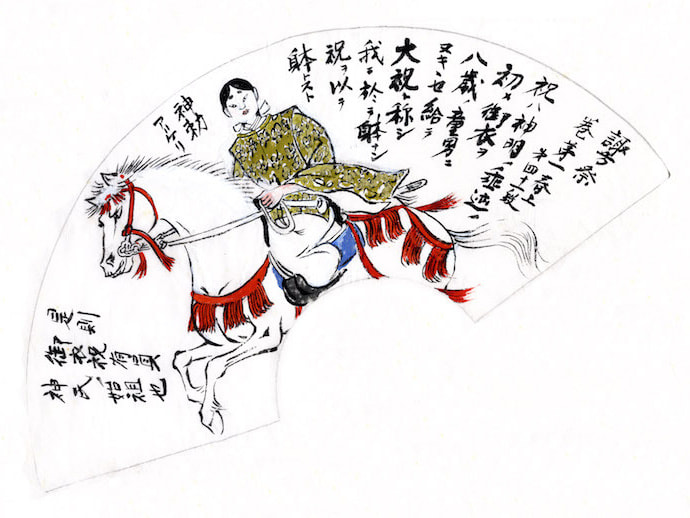 諏方祭
巻ノ第一 春上
祝ハ神明ノ垂迹ノ
初メ御衣ヲ
八歳ノ童男ニ
ヌキキセ給テ
大祝ト称シ
我ニ於テ躰ナシ
祝ヲ以テ
躰トスト
神勅
アリケリ
是則
御衣祝有員
神氏ノ始祖也